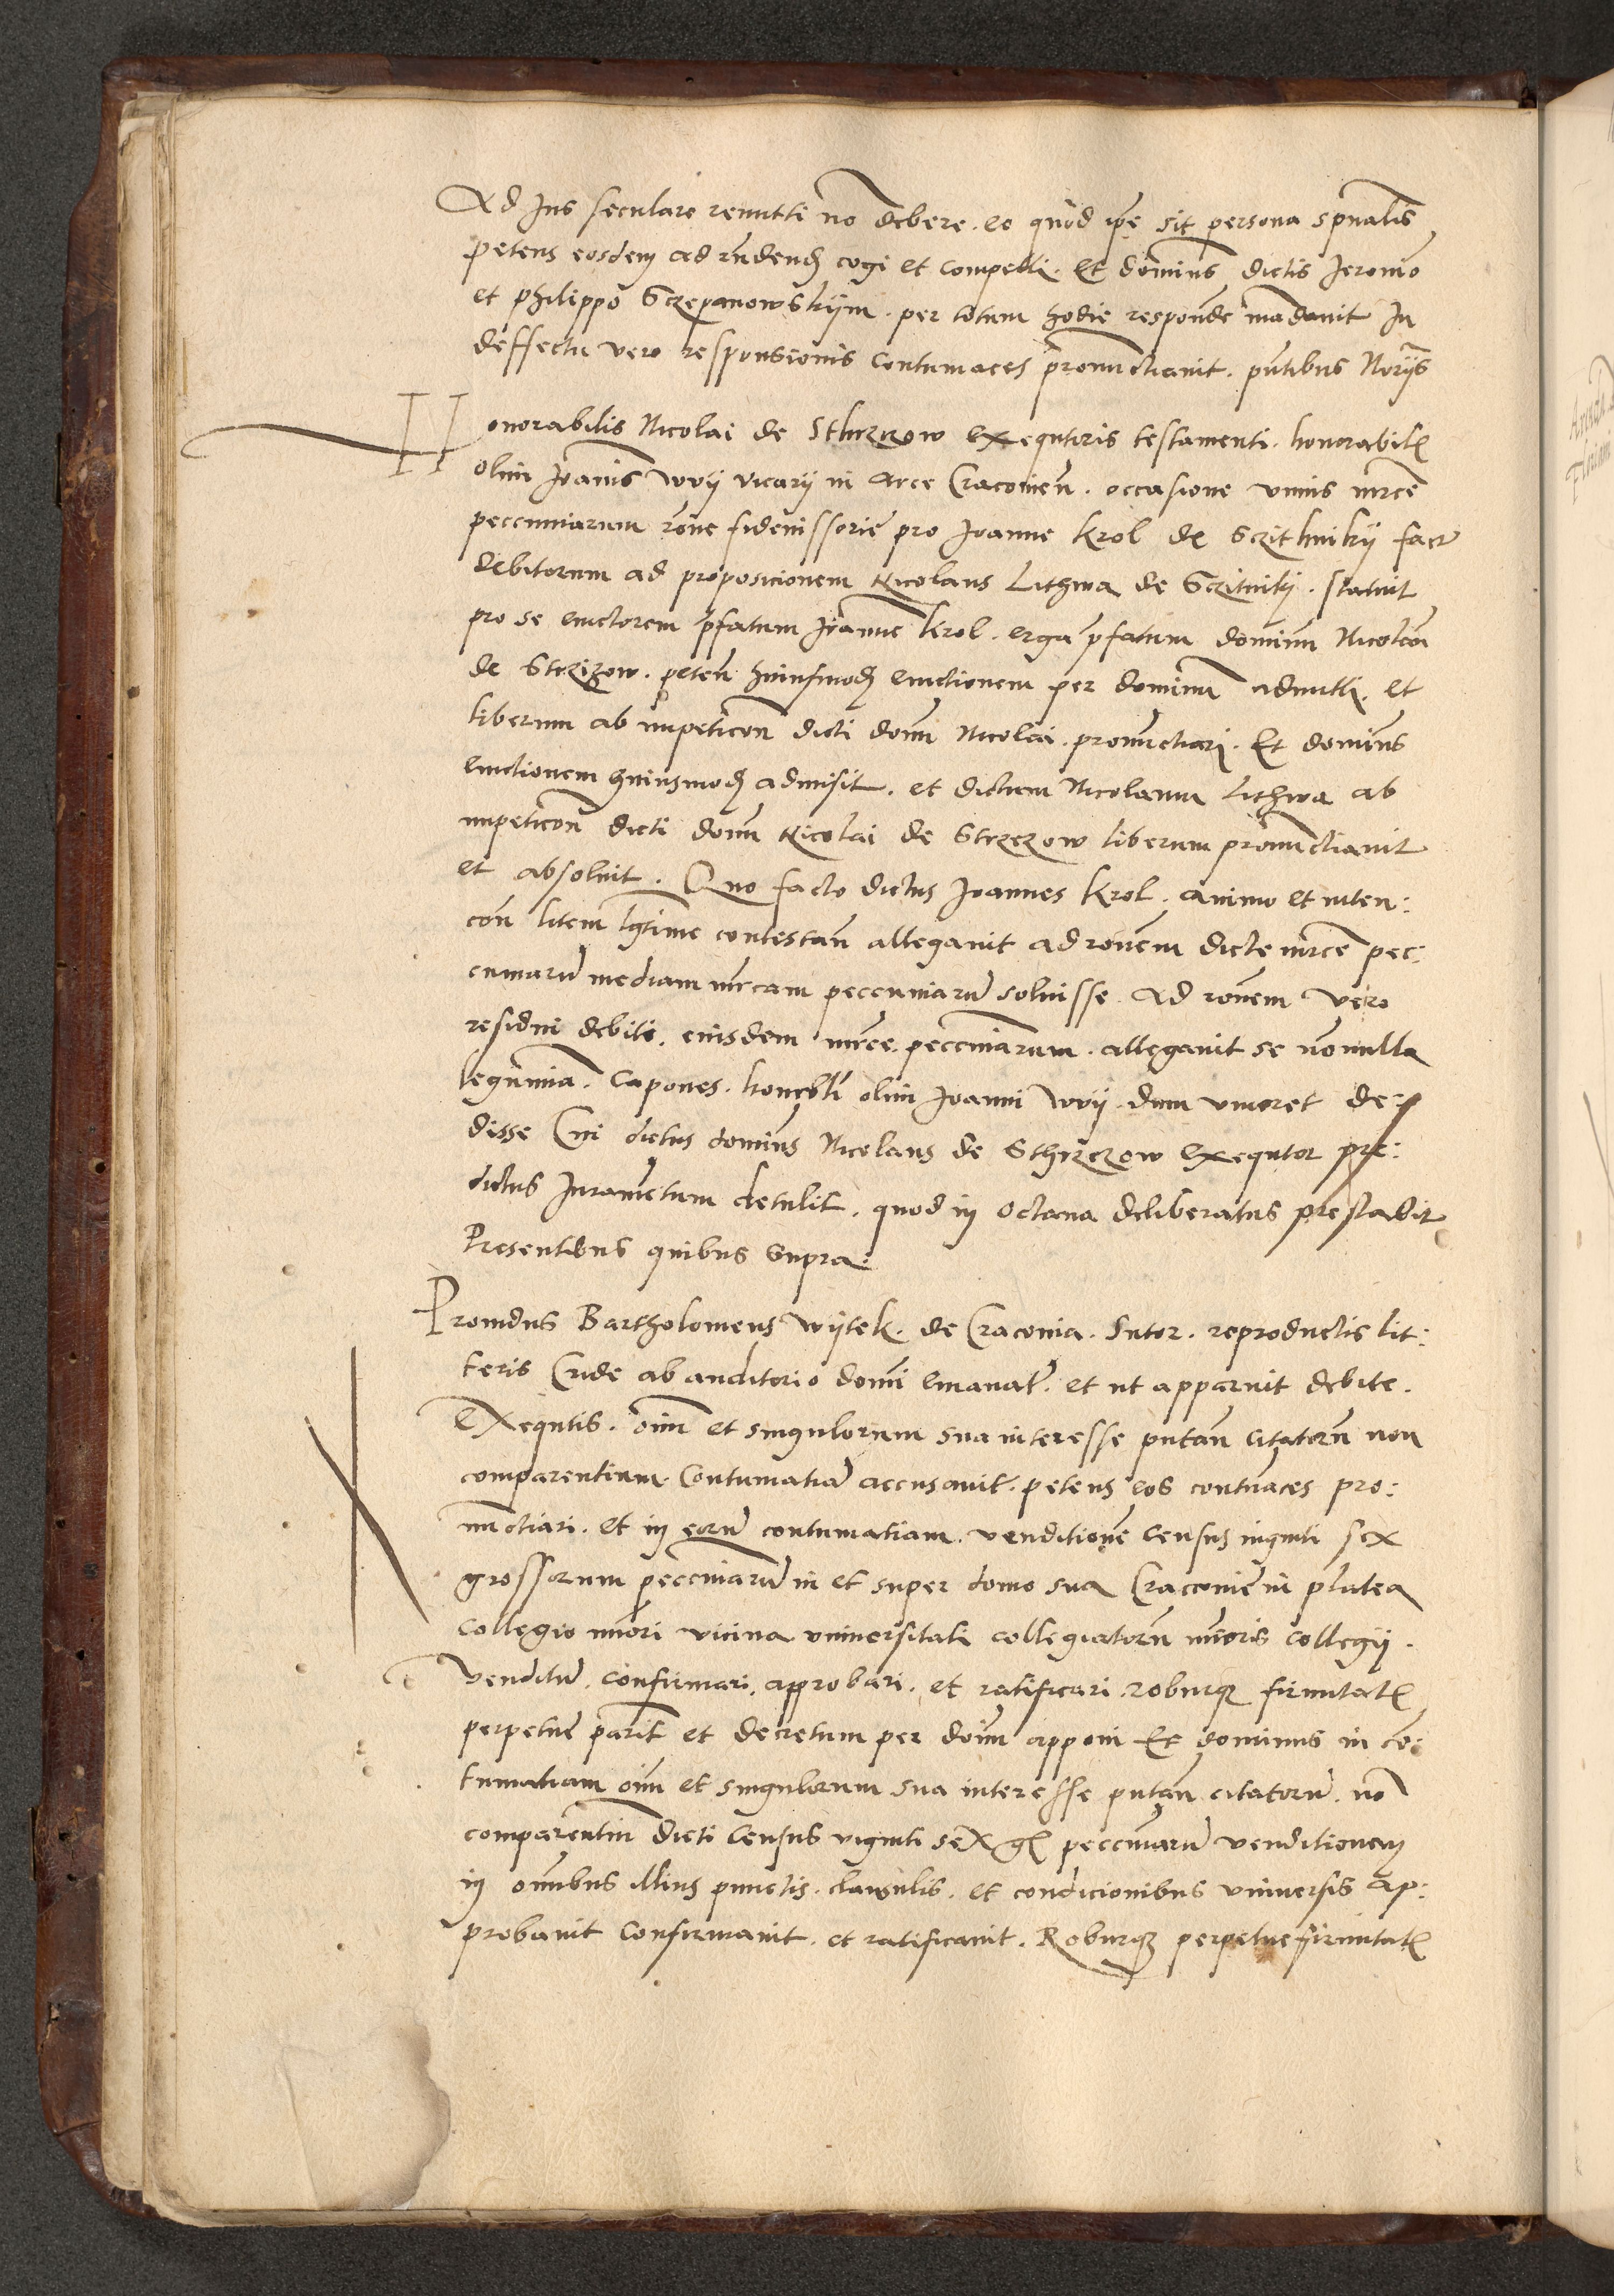 Ad Jus seculare remitti no debere. eo quod ipe sit persona spualis
petens eosdem ad rndend cogi et compelli. Et dominus dictis Jeronio
et philippo Sczepanowskijm. per totum hodie responde madavit In
deffectu vero responsionis contumaces pronunctiavit. pntibus Norijs
Honorabilis Nicolai de Sthrzezow Exequtoris testamenti. honorabil
olim Joanis Wvij vicarij in Arce Cracovien. occasione unius mrce
peccuniarum rone fideiussorie pro Joanne Krol de Sczithnikij fact
debitorum ad proposicionem Nicolaus Lithwa de Sczitnikij. statuit
pro se evictorem pfatum Joanne Krol. erga pfatum dominu Nicolau
de Strzizow. peten huiusmod evictionem per dominu admitti. et
liberum ab impeticon dicti domi Nicolai. pronunctiari. Et dominus
evictionem huiusmod admisit. et dictum Nicolaum Lithwa ab
impeticon dicti domi Nicolai de Strzezow liberum pronunctiavit
et absolvit. Quo facto dictus Joannes Krol. animo et inten:
con litem lgtime contestan allegavit ad ronem dicte mrce pec:
cuniaru mediam mrcam peccuniaru solvisse. Ad ronem vero
residui debiti. eiusdem mrce. peccuniarum. allegavit se nonnulla
legumina. Capones. honrbli olim Joanni Wvij. dum viveret de:
disse Cui dictus dominus Nicolaus de Sthrzezow Exequtor pre:
dictus Juramentum detulit. quod in octava deliberatus prestabit
Presentibus quibus Supra:
Providus Bartholomeus Wijtek. de Cracovia. Sutor. reproductis lit:
teris Cride ab auditorio domi emanat. et ut apparuit debite.
Exequtis. oim et singulorum sua interesse putan citatoru non
comparentium. Contumatia accusavit. petens eos contuaces pro:
nunctiari. et in eoru contumatiam. venditione Census viginti sex
grossorum peccuniaru in et super domo sua Cracovie in platea
Collegio minori vicina universitati collegiatoru minoris Collegij.
venditu. confirmari, approbari. et ratificari. roburq firmitat
perpetue parit et decretum per doim apponi Et dominus in co:
tumatiam oim et singulorum sua interesse putan citatoru. no
comparentiu dicti Census viginti sex gr peccuniaru venditionem
in omibus illius punctis. clausulis. et condicionibus universis ap:
probavit Confirmavit. et ratificavit. Roburq perpetue firmitat